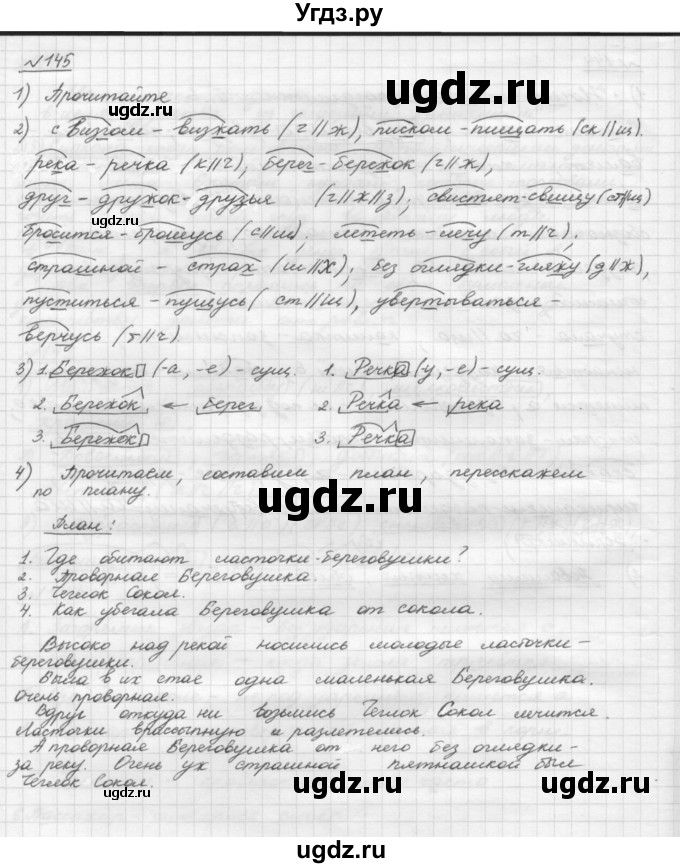 Угдз.ру
№145
1) Прочитайте
2) с визгом – визжать (г//ж), писком – пищать (ск//щ).
река – речка (к//ч), берег – бережок (г//ж),
друг – дружок – друзья (г//ж//з), свистят – свищу (ст//щ)
бросится – брошусь (с//ш), лететь – лечу (т//ч),
страшной – страх (ш//х), без оглядки – гляжу (д//ж),
пуститься – пущусь (ст//щ), увертываться –
верчусь (т//ч).
3) 1. Бережок (-а, -е) – сущ. 1. Речка (у, -е) – сущ.
2. Бережок ← берег 2. Речка ← река
3. Бережок 3. Речка
4) Прочитаем, составим план, перескажем
по плану.
План:
1. Где обитают ласточки-береговушки?
2. Проворная Береговушка.
3. Чеглок Сокол.
4. Как убегала Береговушка от сокола.
Высоко над рекой носились молодые ласточки-
береговушки.
Была в их стае одна маленькая Береговушка.
Очень проворная.
Вдруг откуда ни возьмись Чеглок Сокол мчится.
Ласточки врассыпную и разлетелись.
А проворная Береговушка от него без оглядки-
за реку. Очень уж страшной пятнашкой был
Чеглок Сокол.
ugdz.ru
ugdz.ru
ugdz.ru
ugdz.ru
ugdz.ru
ugdz.ru
ugdz.ru
ugdz.ru
ugdz.ru